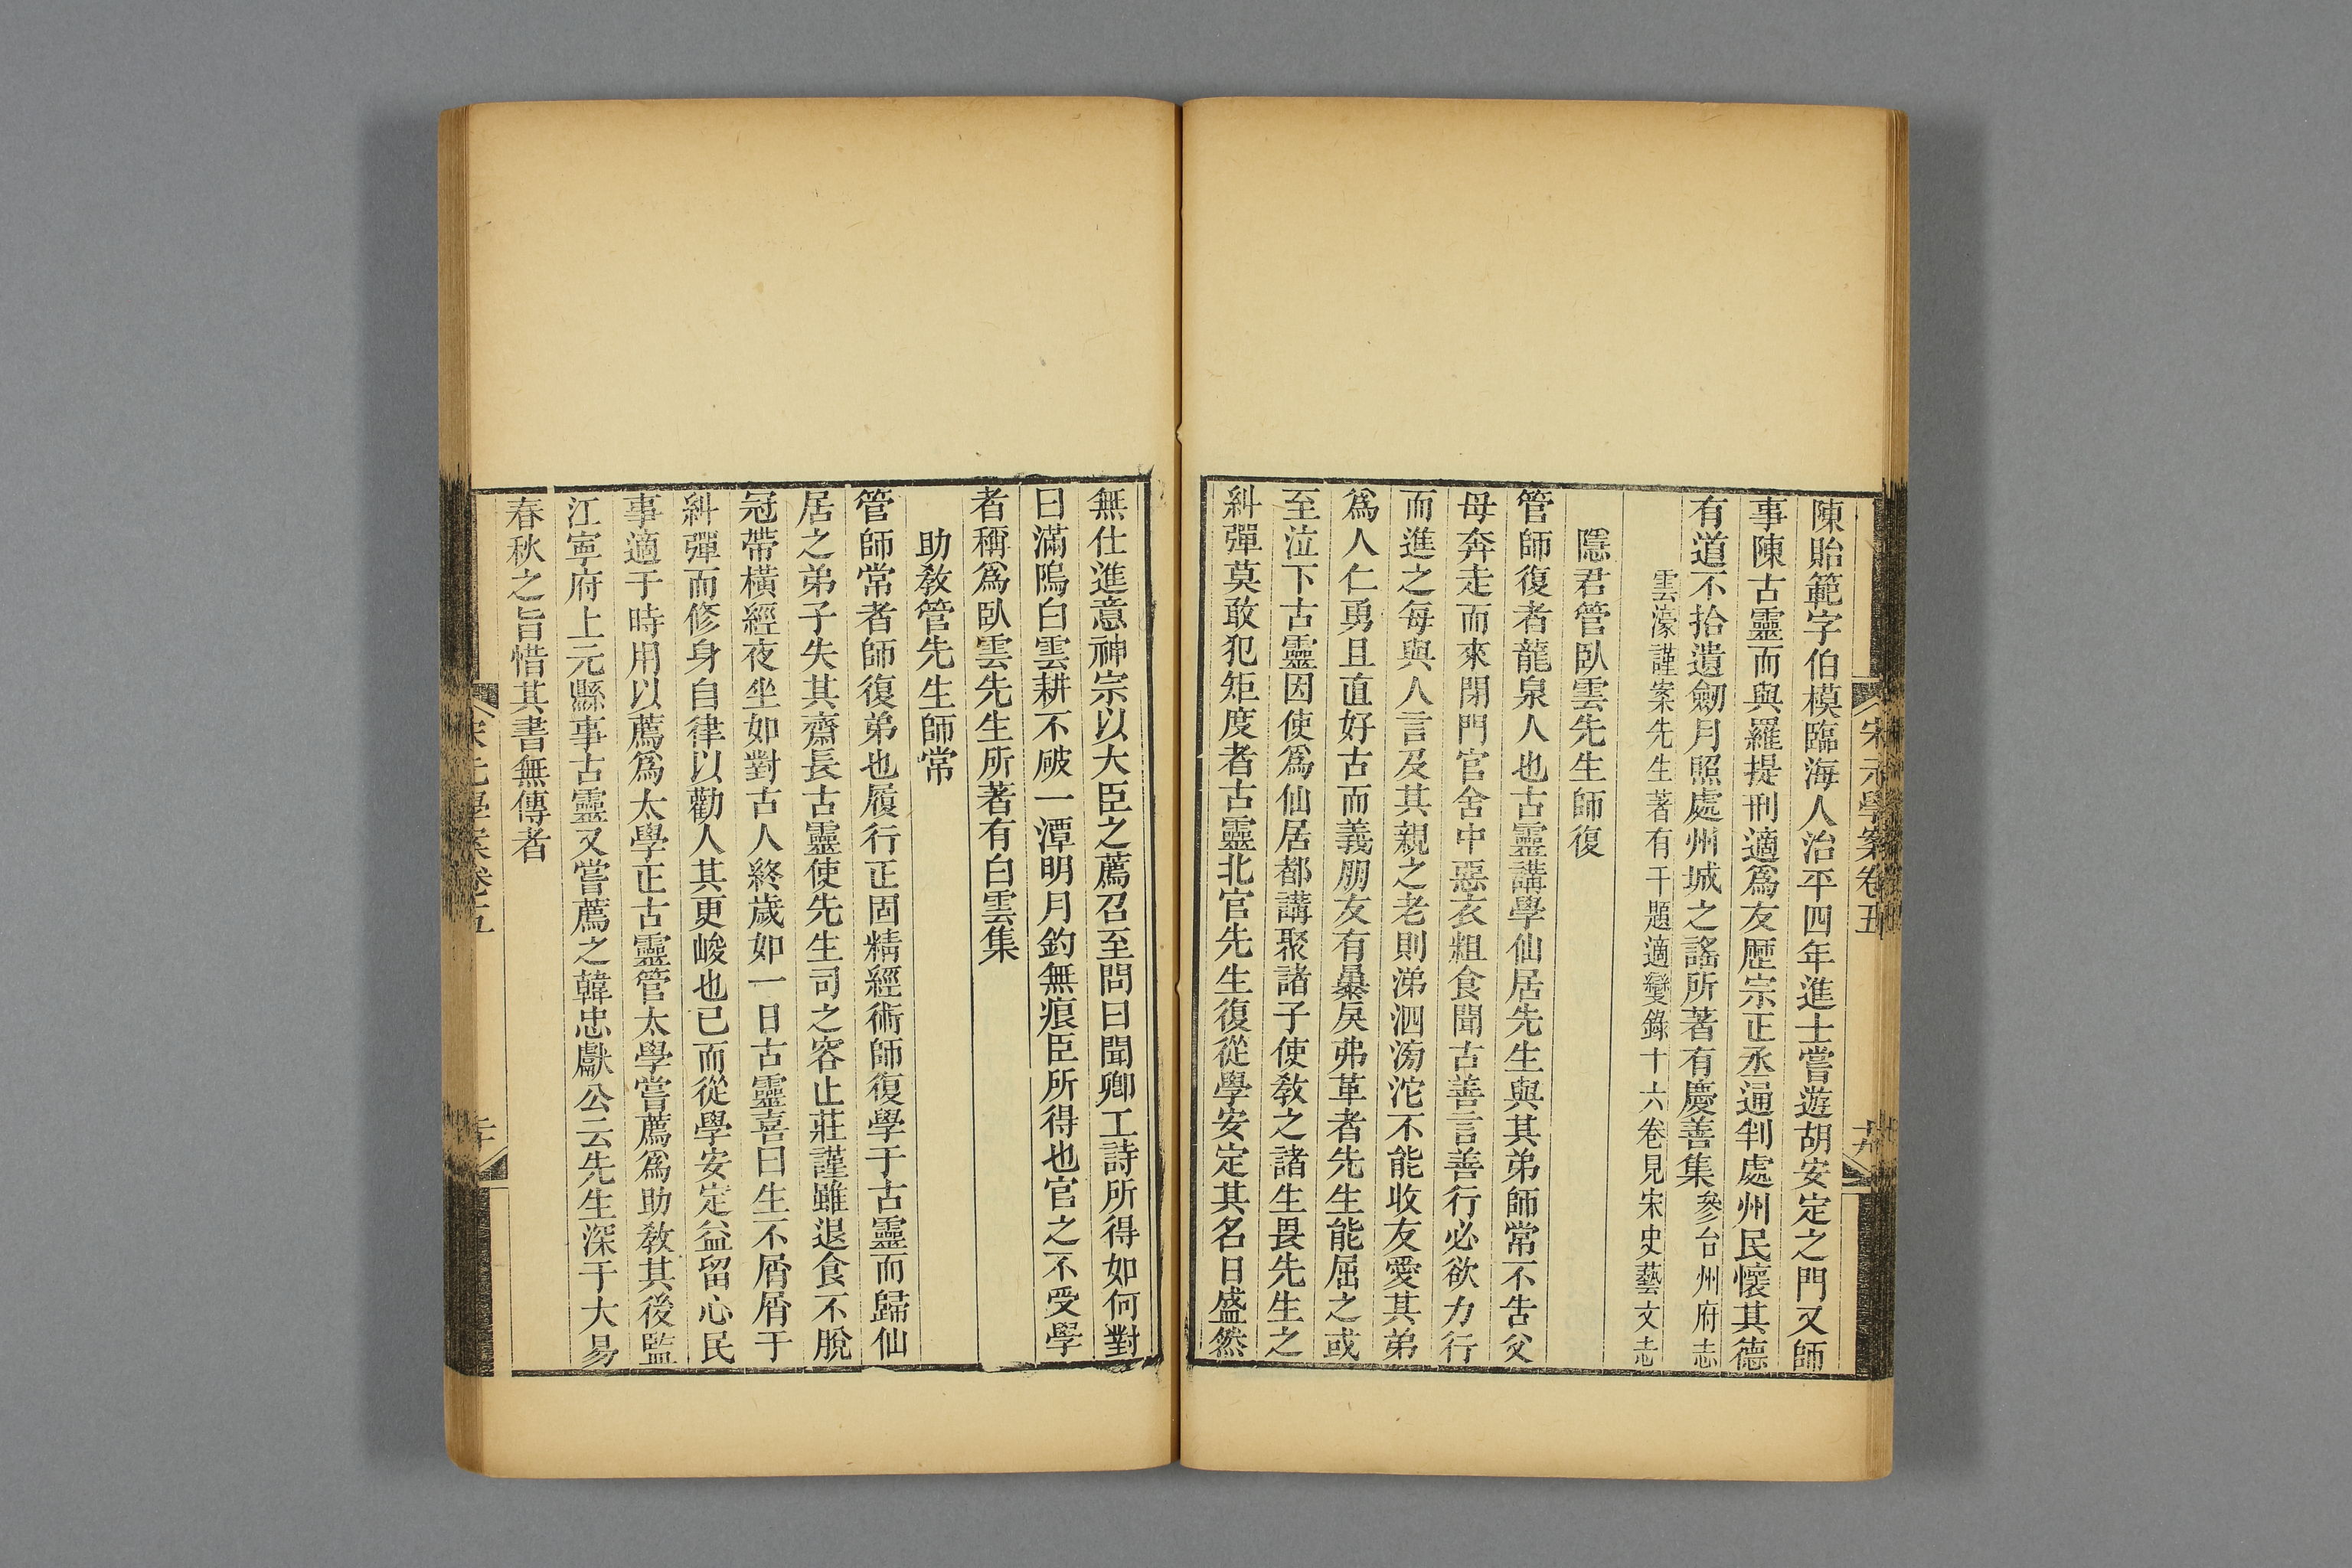 宋元學案卷五
陳貽範字伯模臨海人治平四年進士嘗遊胡安定之門又師
事陳古靈而與羅提刑適爲友歷宗正丞通判處州民懷其德
有道不拾遺劒月照處州城之謠所著有慶善集參台州府志
雲濠謹案先生著有千題適變錄十六卷見宋史藝文志
隱君管臥雲先生師復
管師復者龍泉人也古靈講學仙居先生與其弟師常不告父
母奔走而來閉門官舍中惡衣粗食聞古善言善行必欲力行
而進之每與人言及其親之老則涕泗滂沱不能收友愛其弟
爲人仁勇且直好古而義朋友有暴戾弗革者先生能屈之或
至泣下古靈因使爲仙居都講聚諸子使敎之諸生畏先生之
糾彈莫敢犯矩度者古靈北官先生復從學安定其名日盛然
無仕進意神宗以大臣之薦召至問曰聞卿工詩所得如何對
曰滿塢白雲耕不破一潭明月釣無痕臣所得也官之不受學
者稱爲臥雲先生所著有白雲集
助敎管先生師常
管師常者師復弟也履行正固精經術師復學于古靈而歸仙
居之弟子失其齋長古靈使先生司之容止莊謹雖退食不脫
冠帶橫經夜坐如對古人終歲如一日古靈喜曰生不屑屑于
糾彈而修身自律以勸人其更峻也已而從學安定益留心民
事適于時用以薦爲太學正古靈管太學嘗薦爲助敎其後監
江寧府上元縣事古靈又嘗薦之韓忠獻公云先生深于大易
春秋之旨惜其書無傳者
宋元學案卷五